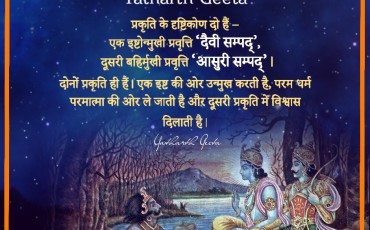 Yatharth Geeta
प्रकृति के दृष्टिकोण दो हैं –
एक इष्टोन्मुखी प्रवृत्ति ‘दैवी सम्पद्’,
दूसरी बहिर्मुखी प्रवृत्ति ‘आसुरी सम्पद्’ ।
दोनों प्रकृति ही हैं। एक इष्ट की ओर उन्मुख करती है, परम धर्म
परमात्मा की ओर ले जाती है और दूसरी प्रकृति में विश्वास
दिलाती है।
Yatharth Geeta